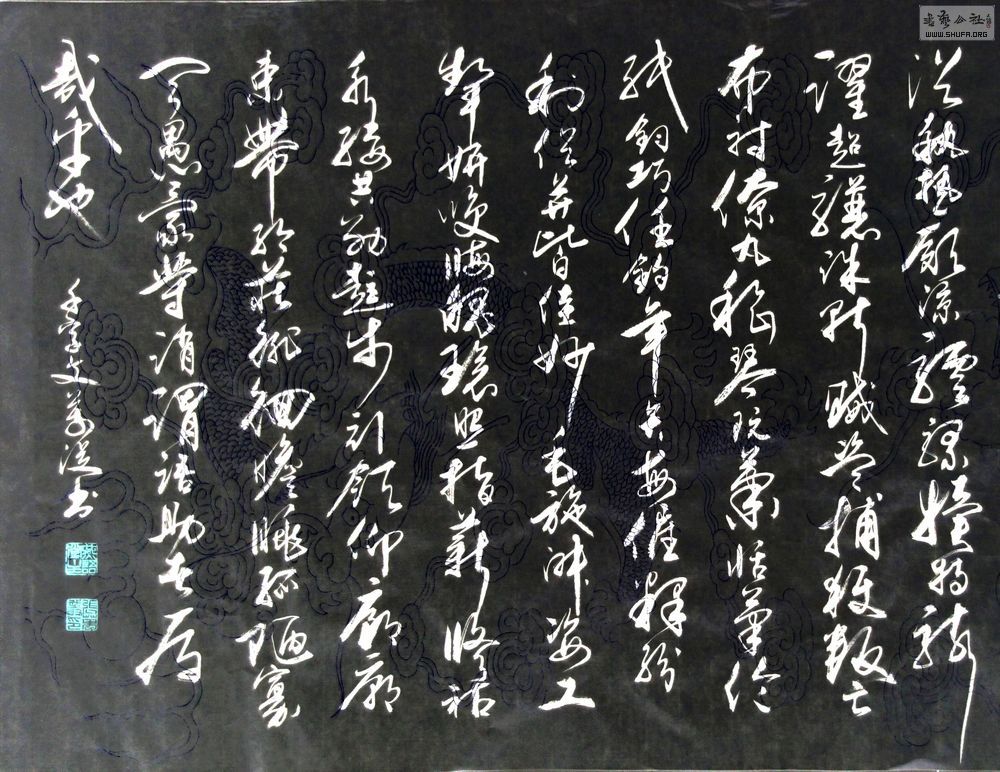 書藝公社
WWW.SHUFA.ORG
浴執熱願涼驢騾犢特駭
躍超驤誅斬賊盜捕獲叛亡
布射僚丸嵇琴阮嘯恬筆倫
紙鈞巧任釣年矢每催釋紛
利俗並皆佳妙毛施淑姿工
顰妍咲晦魄環照指薪修祜
永綏吉劭矩步引領仰廊廟
束帶矜莊徘徊瞻眺孤陋寡
聞愚蒙等誚謂語助者焉
哉乎也
千字文 書